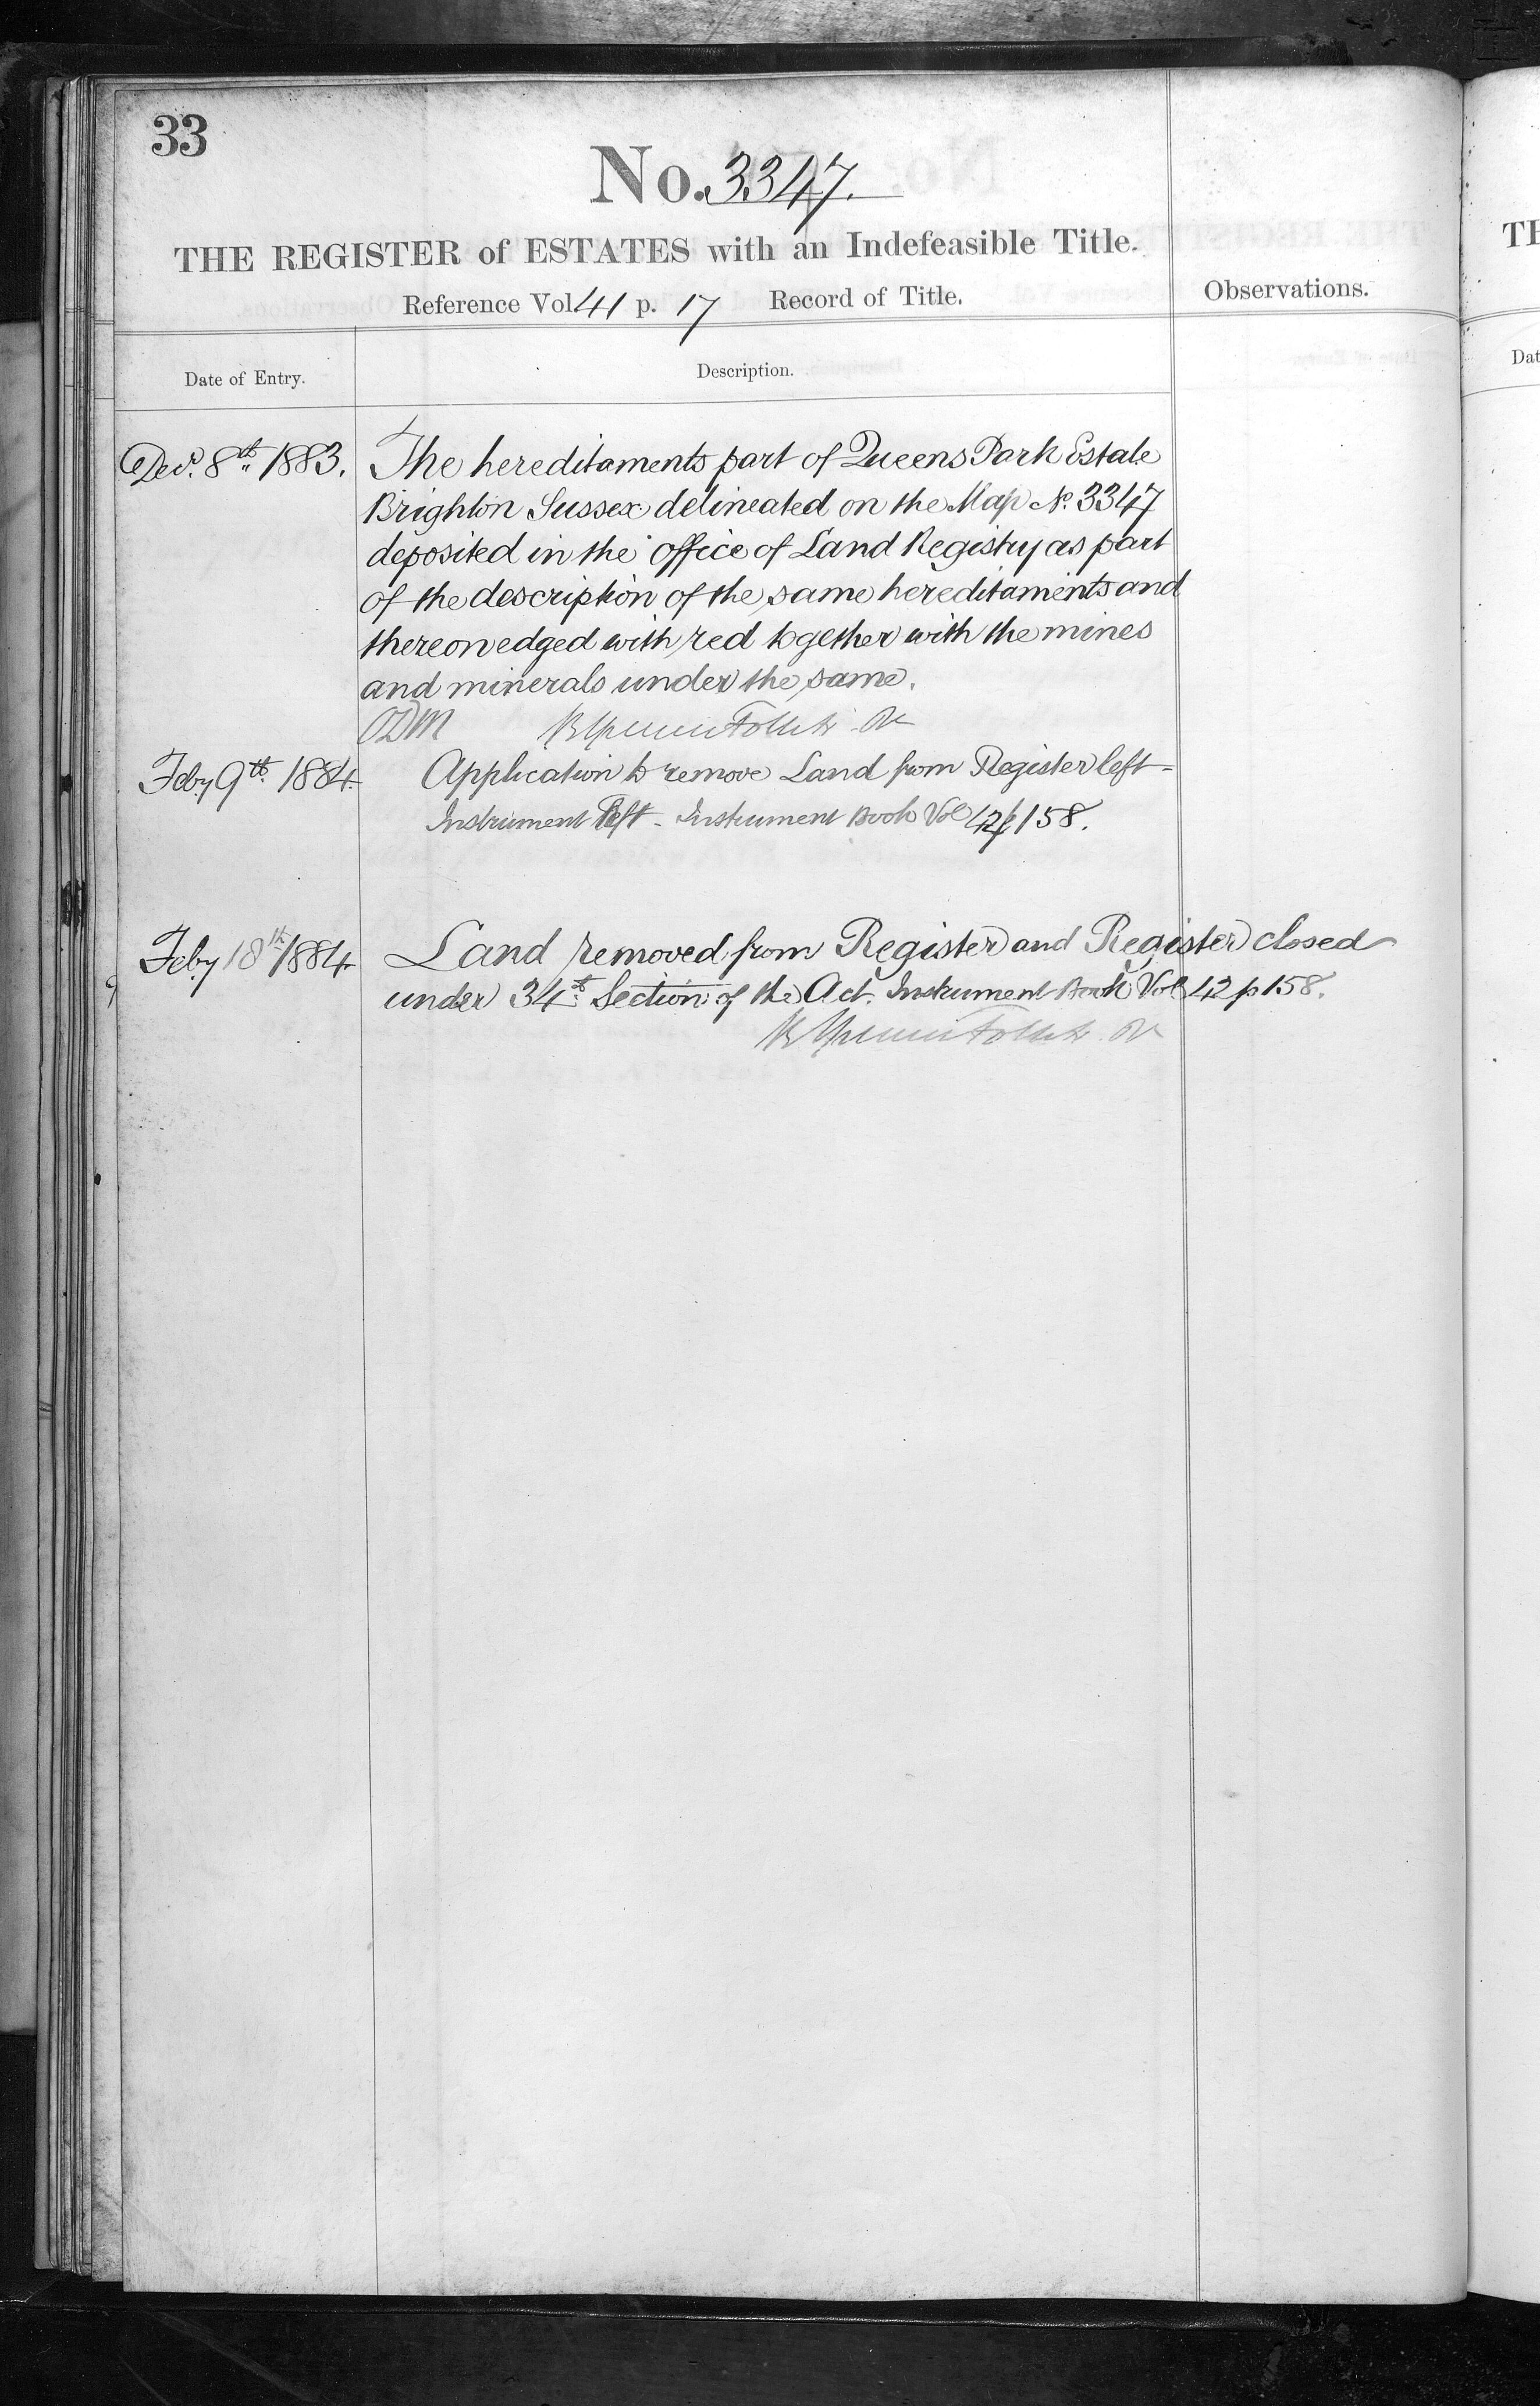 33
No. 3347.
THE REGISTER of ESTATES with an Indefeasible Title.
Reference Vol 41 p. 17 Record of Title.
Observations.
Date of Entry.
Description.
Decr. 8th 1883. The hereditaments part of Queens Park Estate
Brighton Sussex delineated on the Map No. 3347
deposited in the Office of Land Registry as part
of the description of the same hereditaments and
thereon edged with red together with the mines
and minerals under the same.
ODM
Feby 9th 1884. Application to remove Land from Register left -
Instrument left - Instrument Book Vol 42 p 158.
Feby 18th 1884. Land removed from Register and Register closed
under 34th Section of the Act. Instrument Book Vol 42 p 158.
TH
Dat